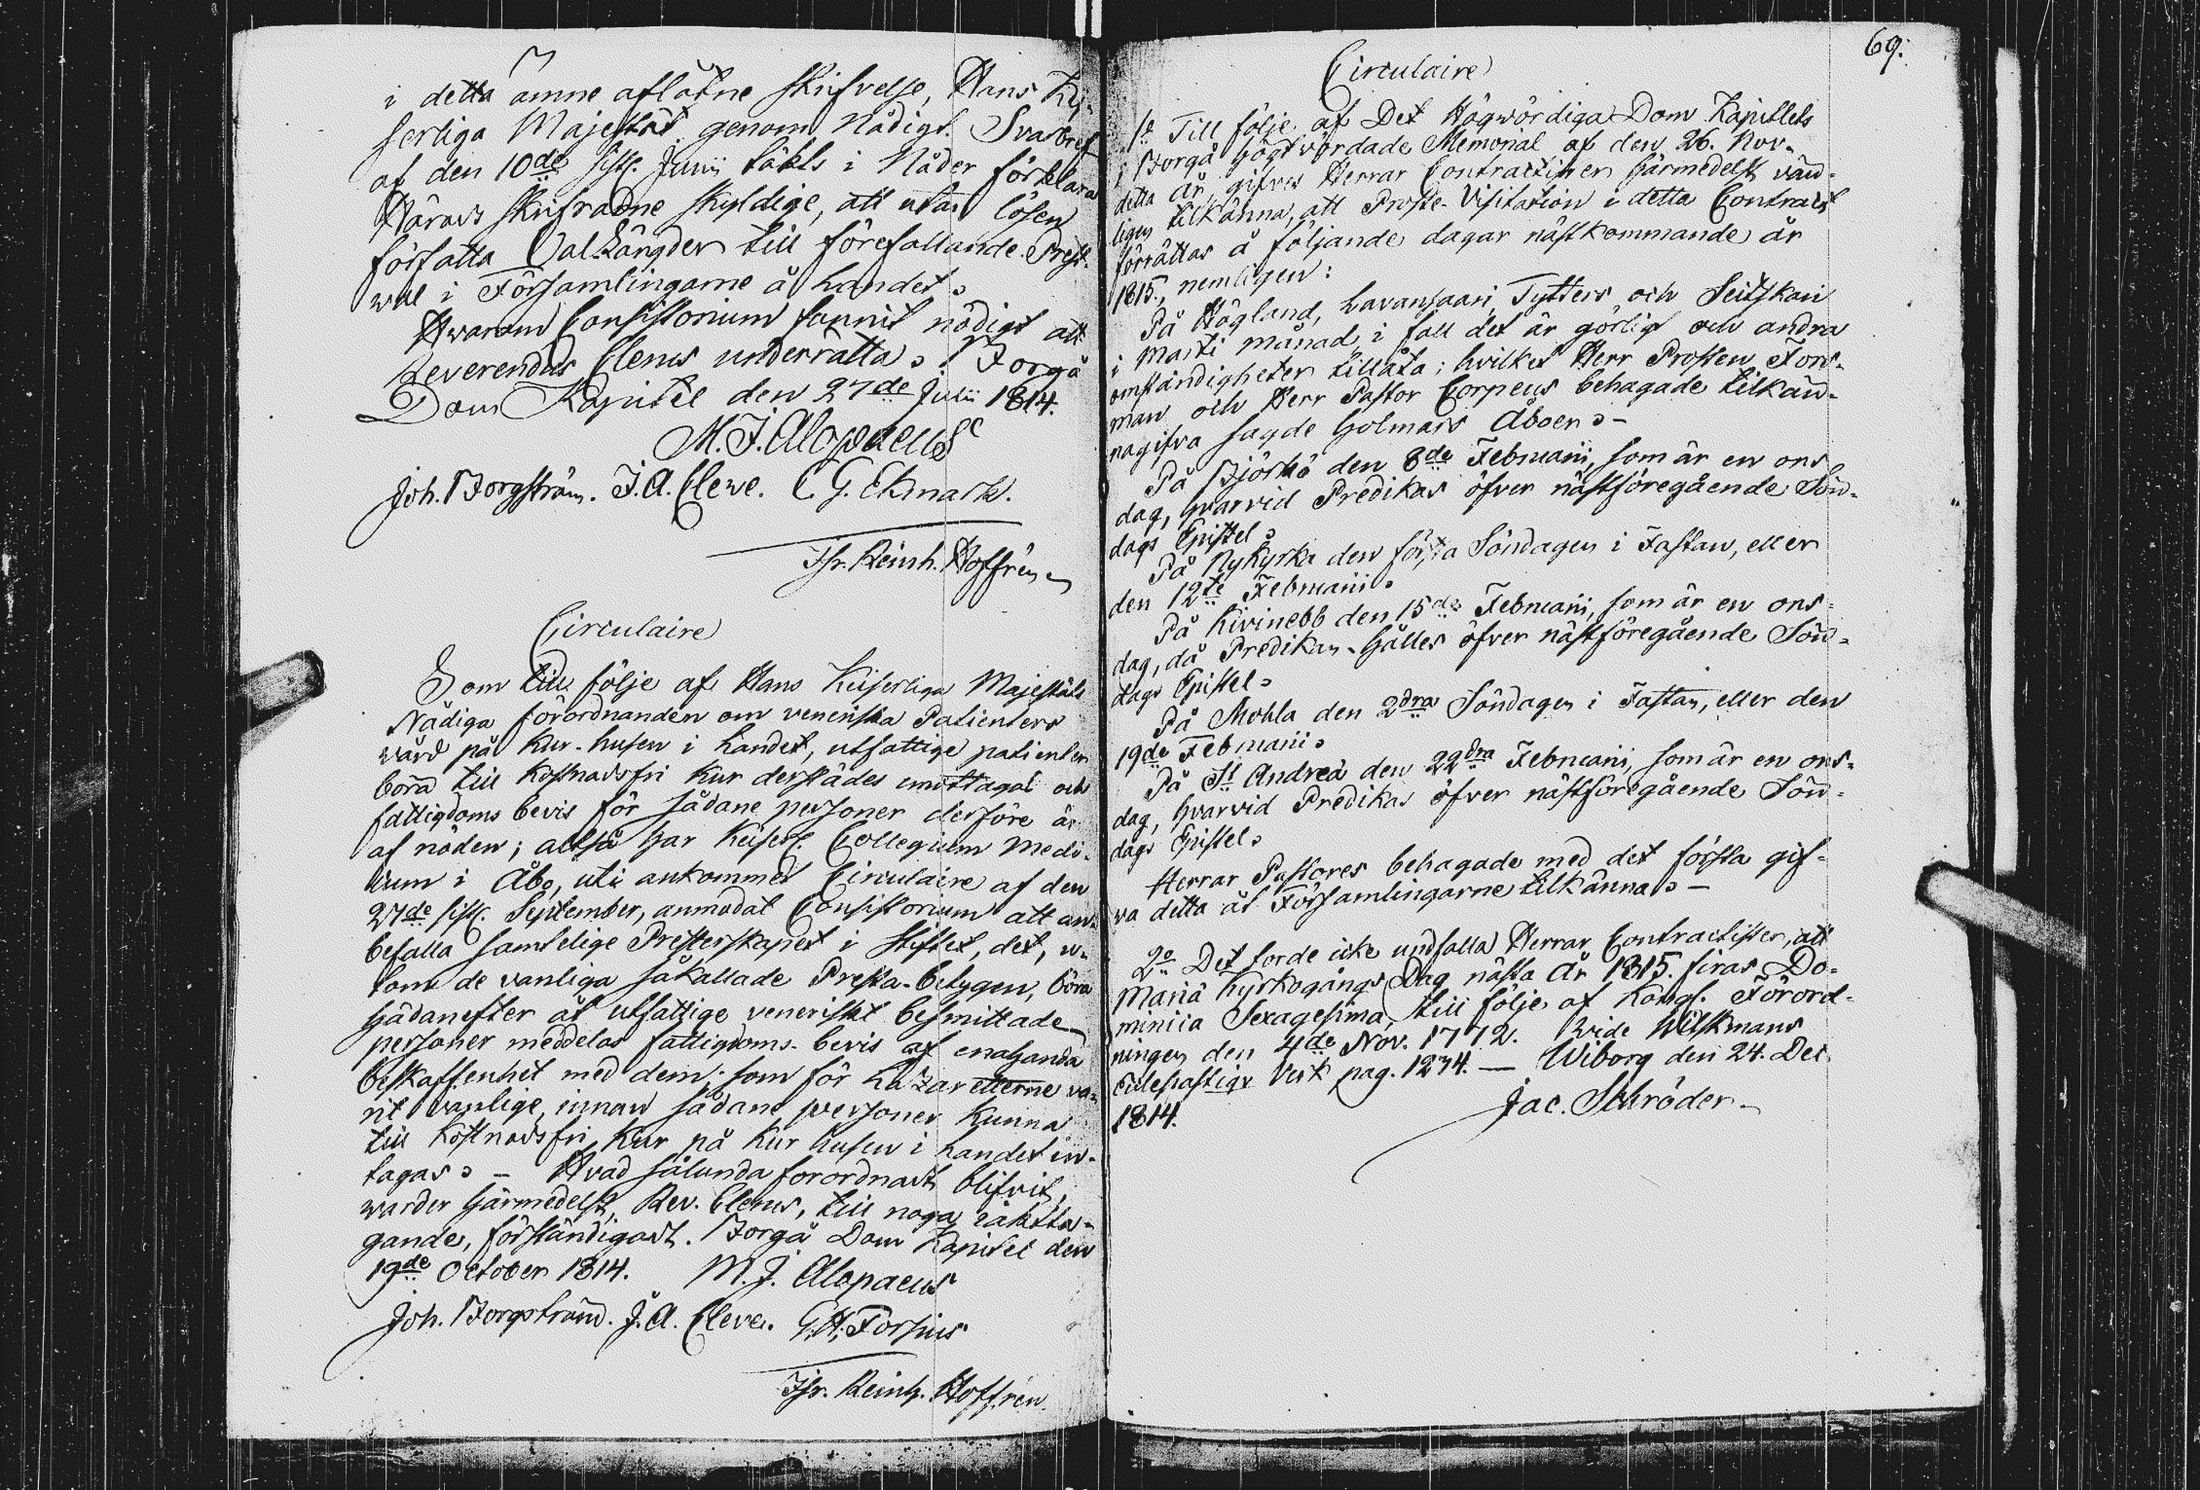 i detta ämne aflåtne skrifvelse, Hans Kej-
serliga Majestät genom Nådigt Svarbref
af den 10de sistl. Junii täkts i Nåder förklara
Härads skrifvarne skyldige, att utan lösen
författa Val-Längder till förefallande Prest-
wal i Församlingarne å Landet.
Hvarom Consistorium funnit nödigt att
Reverendus Clerus underrätta. Borgå
Dom Kapitel den 27de Julii 1814.
M. J. Alopaeus
Joh. Borgström. J. A. Cleve. C. G. Ekmark.
Fr. Reinh. Hoffrén
Circulaire
Som till följe af Hans Keiserliga Majestäts
Nådiga förordnanden om veneriska Patienters
vård på Kur-husen i Landet, utfattige patienter
böra till kostnadsfri Kur derstädes emottagas och
fattigdoms bevis för sådane personer derföre är
af nöden; altså har Keiserl. Collegium Medi-
cum i Åbo, uti ankommet Circulaire af den
27de sistl. September, anmodat Consistorium att an-
befalla samtelige Presterskapet i Stiftet, det, u-
tom de vanliga såkallade Presta-betygen, böra
hädanefter åt utfattige veneriskt besmittade
personer meddelas fattigdoms-bevis af enahanda
beskaffenhet med dem, som för Lazaretterne va-
rit vanlige, innan sådane personer kunna
till kostnadsfri Kur på Kur husen i Landet in-
tagas. – Hvad sålunda förordnadt blifvit,
warder härmedelst, Rev. Clerus, till noga iaktta-
gande, förständigadt. Borgå Dom Kapitel den
19de October 1814. M. J. Alopaeus
Joh. Borgström. J. A. Cleve. G. H. Forsius
Fr. Reinh. Hoffrén
69.
Circulaire
1o Till följe af Det Högwördiga Dom Kapitlets
i Borgå högtvördade Memorial af den 26. Nov.
detta år, gifves Herrar Contractister härmedelst vän-
ligen tilkänna, att Proste-Visitation i detta Contract
förrättas å följande dagar nästkommande år
1815, nemligen:
På Högland, Lavansaari, Tytters och Seitskari
i Martii månad, i fall det är görligt och andra
omständigheter tillåta; hvilket Herr Prosten Fors-
man och Herr Pastor Corpeus behagade tilkän-
nagifva sagde Holmars Åboer. –
På Björkö den 8de Februarii, som är en ons-
dag, hvarvid Predikas öfver nästföregående Sön-
dags Epistel.
På Nykyrka den första Söndagen i Fastan, eller
den 12te Februarii.
På Kivinebb den 15de Februarii, som är en ons-
dag, då Predikan hålles öfver nästföregående Sön-
dags Epistel.
På Mohla den 2dra Söndagen i Fastan, eller den
19de Februarii.
På St Andreæ den 22dra Februarii, som är en ons-
dag, hvarvid Predikas öfver nästföregående Sön-
dags Epistel.
Herrar Pastores behagade med det första gif-
va detta åt Församlingarne tilkänna. –
2o Det torde icke undfalla Herrar Contractister, att
Mariä Kyrkogångs Dag nästa År 1815. firas Do-
minica Sexagesima, till följe af Kongl. Förord-
ningen den 4de Nov. 1772. Vide Wilskmans
Eclesiastique Verk pag. 1234. — Wiborg den 24. Dec
1814.
Jac. Schröder